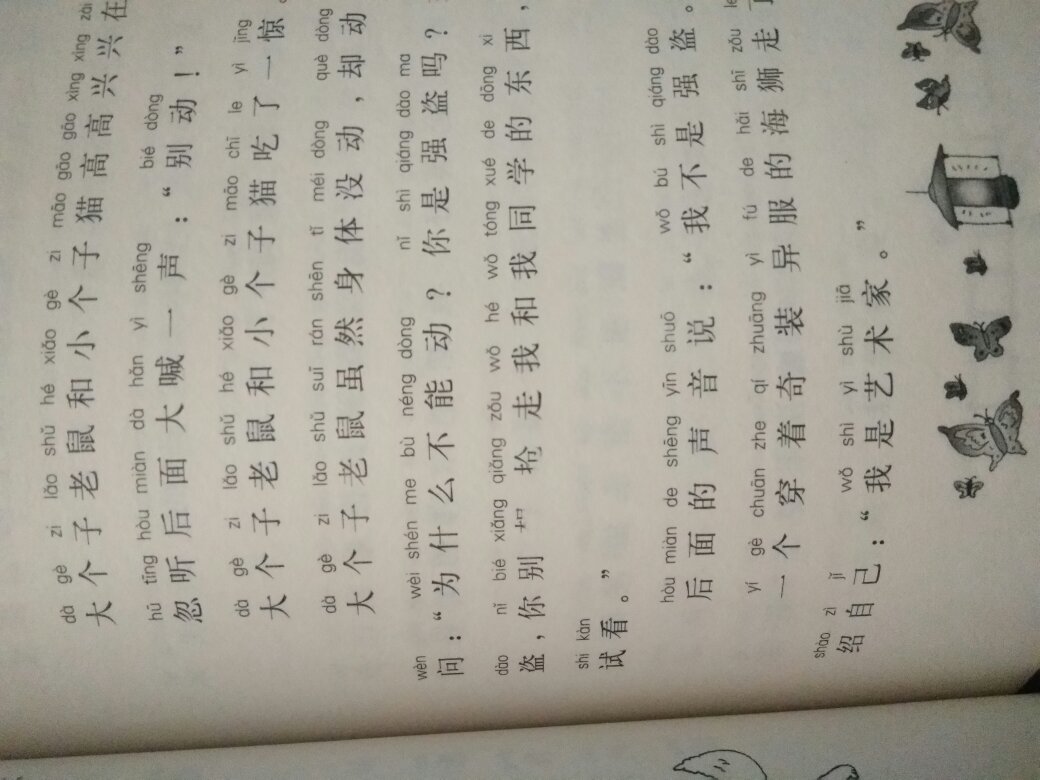 dà gè zi lǎo shǔ hé xiǎo gè zi māo gāo gāo xìng xìng zài
大个子老鼠和小个子猫高高兴兴在
hū tīng hòu miàn dà hǎn yì shēng bié dòng
忽听后面大喊一声：“别动！”
dà gè zi lǎo shǔ hé xiǎo gè zi māo chī le yì jīng
大个子老鼠和小个子猫吃了一惊。
dà gè zi lǎo shǔ suī rán shēn tǐ méi dòng què dòng
大个子老鼠虽然身体没动，却动
wèn wèi shén me bù néng dòng nǐ shì qiáng dào ma
问：“为什么不能动？你是强盗吗？
dào nǐ bié xiǎng qiǎng zǒu wǒ hé wǒ tóng xué de dōng xi
盗，你别抢走我和我同学的东西，
shì kàn
试看。”
hòu miàn de shēng yīn shuō wǒ bú shì qiáng dào
后面的声音说：“我不是强盗。
yí gè chuān zhe qí zhuāng yì fú de hǎi shī zǒu le
一个穿着奇装异服的海狮走了
shào zì jǐ wǒ shì yì shù jiā
绍自己：“我是艺术家。”